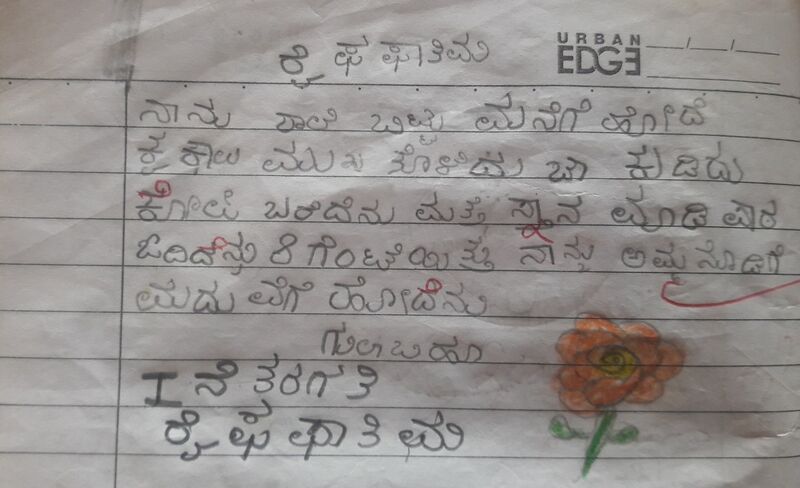 ರೈಫ ಫಾತಿಮ
URBAN
EDGE
ನಾನು ಶಾಲೆ ಬಿಟ್ಟು ಮನೆಗೆ ಹೋದೆ
ಕೈಕಾಲು ಮುಖ ತೊಳೆದು ಚಾ ಕುಡಿದು
ಕೋಪಿ ಬರೆದೆನು ಮತ್ತೆ ಸ್ನಾನ ಮಾಡಿ ಪಾಠ
ಓದಿದೆನ್ನು 8 ಗಂಟೆಯಿತ್ತು ನಾನ್ನು ಅಮ್ಮನೊಡಿಗೆ
ಮದುವೆಗೆ ಹೋದೆನು
ಗುಲಾಬಿ ಹೂ
I ನೆ ತರಗತಿ
ರೈಫ ಫಾತಿಮ